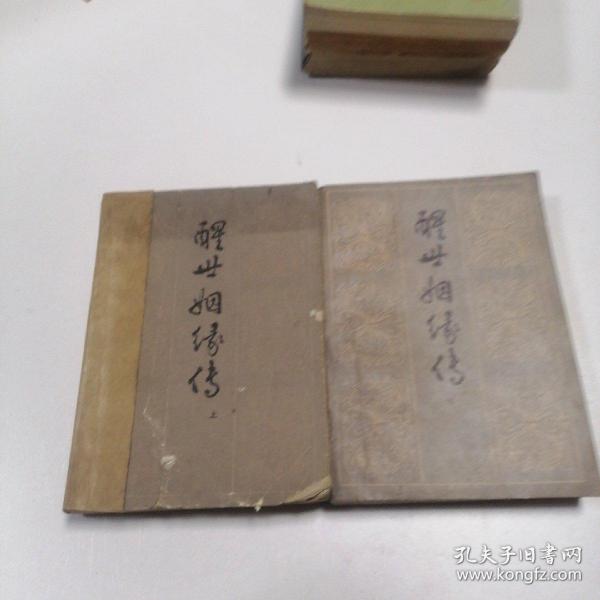 醒世姻缘传
上
醒世姻缘传
孔夫子旧书网
www.kongfz.com